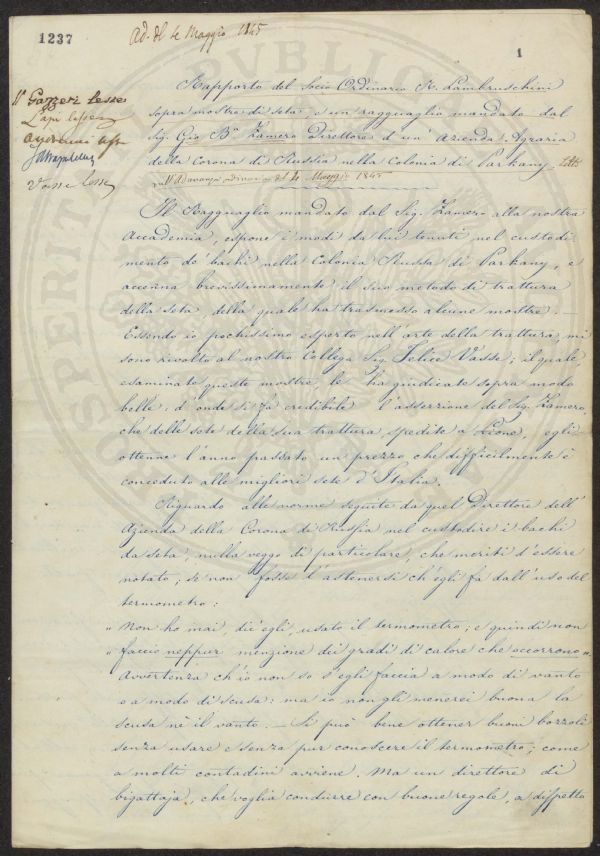 1237
Ad. del 4 Maggio 1845
1
Vº Gazzeri lesse
Lapi lesse
lesse
Vasse lesse
Rapporto del Socio Ordinario R. Lambruschini
sopra mostre di seta, e un ragguaglio mandato dal
Sig. Gio Bª Zamero Direttore d'un' Azienda Agraria
della Corona di Russia nella Colonia di Parkany letto
nell'Adunanza ordinaria del 4 Maggio 1845
Il Ragguaglio mandato dal Sig. Zamero alla nostra
Accademia, espone i modi da lui tenuti nel custodi
mento de' bachi nella Colonia Russa di Parkany, e
accenna brevissimamente il suo metodo di trattura
della seta, della quale ha trasmesso alcune mostre. —
Essendo io pochissimo esperto nell'arte della trattura, mi
sono rivolto al nostro Collega Sig. Felice Vasse; il quale,
esaminate queste mostre, le ha giudicate sopra modo
belle. d'onde si fa credibile l'asserzione del Sig. Zamero,
che delle sete della sua trattura spedite a Lione, egli
ottenne l'anno passato un prezzo che difficilmente è
conceduto alle migliori sete d'Italia.
Riguardo alle norme seguite da quel Direttore dell'
Azienda della Corona di Russia nel custodire i bachi
da seta, nulla veggo di particolare, che meriti d'essere
notato; se non fosse l'astenersi ch'egli fa dall'uso del
termometro:
" Non ho mai, dic'egli, usato il termometro; e quindi non
" faccio neppur menzione dei gradi di calore che occorrono".
Avvertenza ch'io non so s'egli faccia a modo di vanto
o a modo di scusa: ma io non gli menerei buona la
scusa nè il vanto. — Si può bene ottener buoni bozzoli
senza usare e senza pur conoscere il termometro; come
a molti contadini avviene. Ma un direttore di
bigattaja, che voglia condurre con buone regole, a dispetto